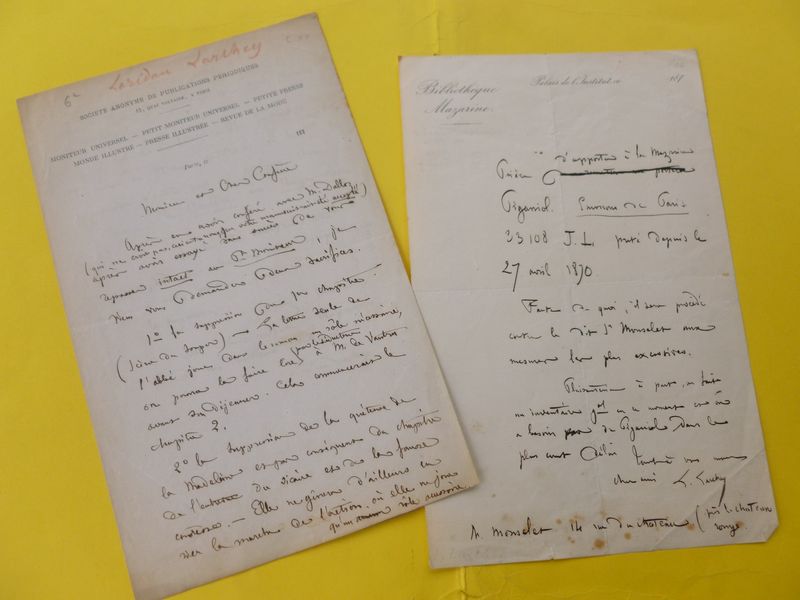 6e Lorédan Larchey
SOCIÉTÉ ANONYME DE PUBLICATIONS PÉRIODIQUES
13, QUAI VOLTAIRE, A PARIS
MONITEUR UNIVERSEL — PETIT MONITEUR UNIVERSEL — PETITE PRESSE
MONDE ILLUSTRÉ — PRESSE ILLUSTRÉE — REVUE DE LA MODE
Paris, le
Monsieur et Cher Confrère
Après en avoir conféré avec M. Dalloz
(qui ne croit pas, car votre manuscrit ait été accepté)
après avoir essayé sans succès de vous
reprocher intact au Pt Moniteur, je
viens vous demander deux sacrifices.
1o la suppression du 1er chapitre
(Scène du Songe) — La lettre seule de
l'abbé joue dans le roman un rôle nécessaire,
on pourra la faire lire par à M. de Vautrot
avant son déjeuner. Cela commencerait le
chapitre 2.
2o la suppression de la quêteuse de
la Madeleine et par conséquent du chapitre
de l'entretien du vicaire et de la fausse
comtesse. — Elle ne gênera d'ailleurs en
rien la marche de l'action où elle ne joue
qu'un rôle accessoire
Bibliothèque
Mazarine
Palais de l'Institut, le
187
Prière d'apporter à la Mazarine
Piganiol. Environs de Paris
33108 J.L. prêté depuis le
27 avril 1870
Faute de quoi, il sera procédé
contre le dit Sr Monselet aux
mesures les plus excessives.
Plaisanterie à part, on fait
un inventaire gal en ce moment et on
a besoin de Piganiol dans le
plus court délai
Tout à vous mon
cher ami L. Larchey
M. Monselet 14 rue du chateau (près le chateau
rouge